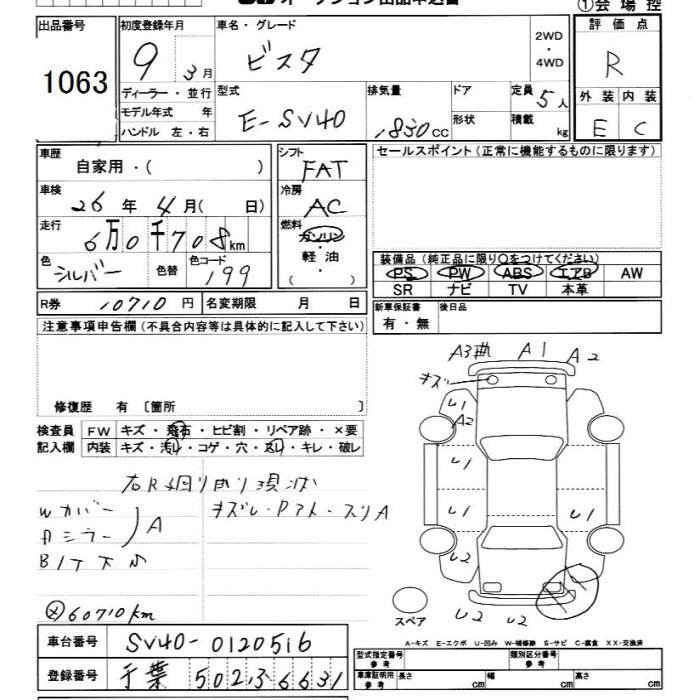 ①会場控
出品番号
1063
初度登録年月
9 3月
車名・グレード
ビスタ
2WD
・
4WD
評価点
R
外装 内装
E C
ディーラー・並行
モデル年式 年
ハンドル 左・右
型式
E-SV40
排気量
1830cc
ドア
形状
定員 5人
積載 kg
車歴
自家用・( )
車検
26年 4月( 日)
走行
6万0千708km
色
シルバー
色替
色コード
199
シフト
FAT
冷房
AC
燃料
ガソリン
軽油
( ・ )
セールスポイント(正常に機能するものに限ります)
装備品(純正品に限り○をつけてください)
PS PW ABS エアB AW
SR ナビ TV 本革
R券 10710円 名変期限 月 日
新車保証書
有・無
後日品
注意事項申告欄(不具合内容等は具体的に記入して下さい)
修復歴 有〔箇所 〕
検査員
記入欄
FW キズ・飛石・ヒビ割・リペア跡・×要
内装 キズ・汚れ・コゲ・穴・スレ・キレ・破レ
Wカバー
Pミラー
A
B/T下凹
60710km
A3 A1 A2
キズ
U1
A2
U1
U1 U1
U2
U2 U2
スペア
A-キズ E-エクボ U-凹み W-補修跡 S-サビ C-腐食 XX-交換済
車台番号 SV40-0120516
登録番号 千葉 502 ろ 6631
型式指定番号
参考
類別区分番号
参考
車庫証明用
参考
長さ cm 幅 cm 高さ cm